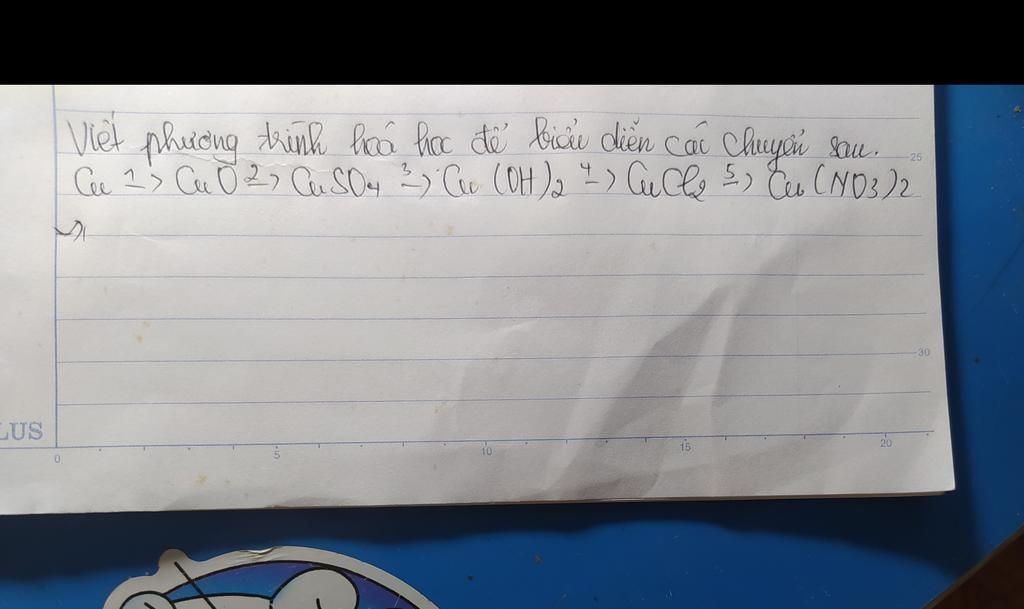 Viết phương trình hoá học để biểu diễn các chuyển sau.
Cu 1-> CuO 2-> CuSO4 3-> Cu (OH)2 4-> CuCl2 5-> Cu (NO3)2
25
30
LUS
0 5 10 15 20